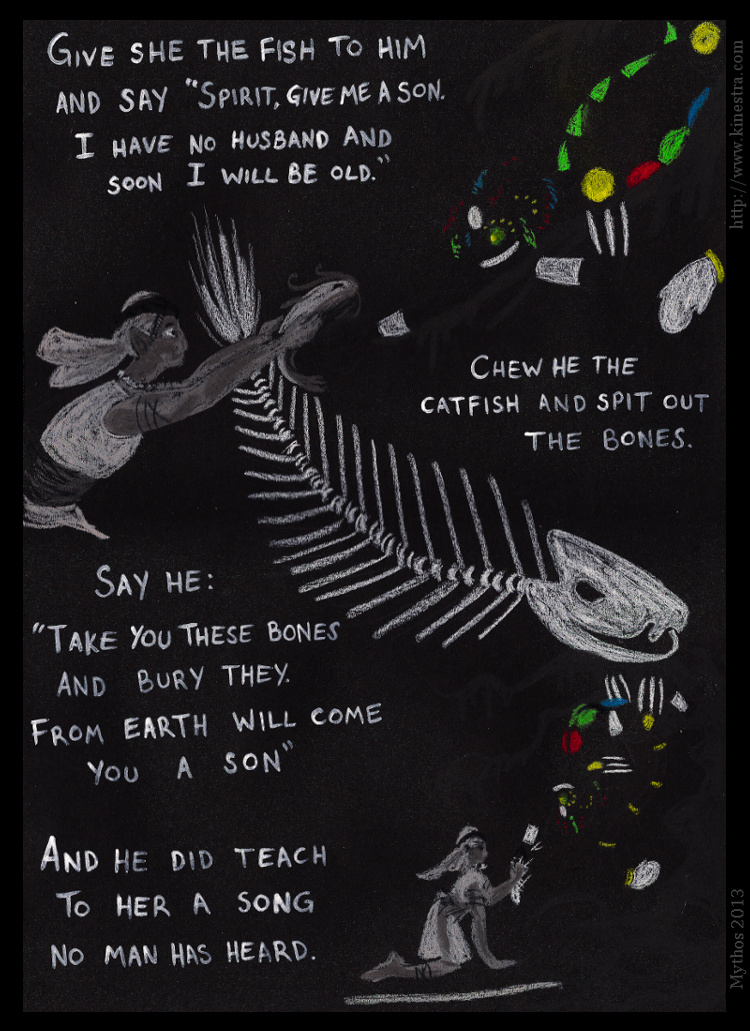 GIVE SHE THE FISH TO HIM
AND SAY "SPIRIT, GIVE ME A SON.
I HAVE NO HUSBAND AND
SOON I WILL BE OLD."
CHEW HE THE
CATFISH AND SPIT OUT
THE BONES.
SAY HE:
"TAKE YOU THESE BONES
AND BURY THEY.
FROM EARTH WILL COME
YOU A SON"
AND HE DID TEACH
TO HER A SONG
NO MAN HAS HEARD.
http://www.kinestra.com
Mythos 2013